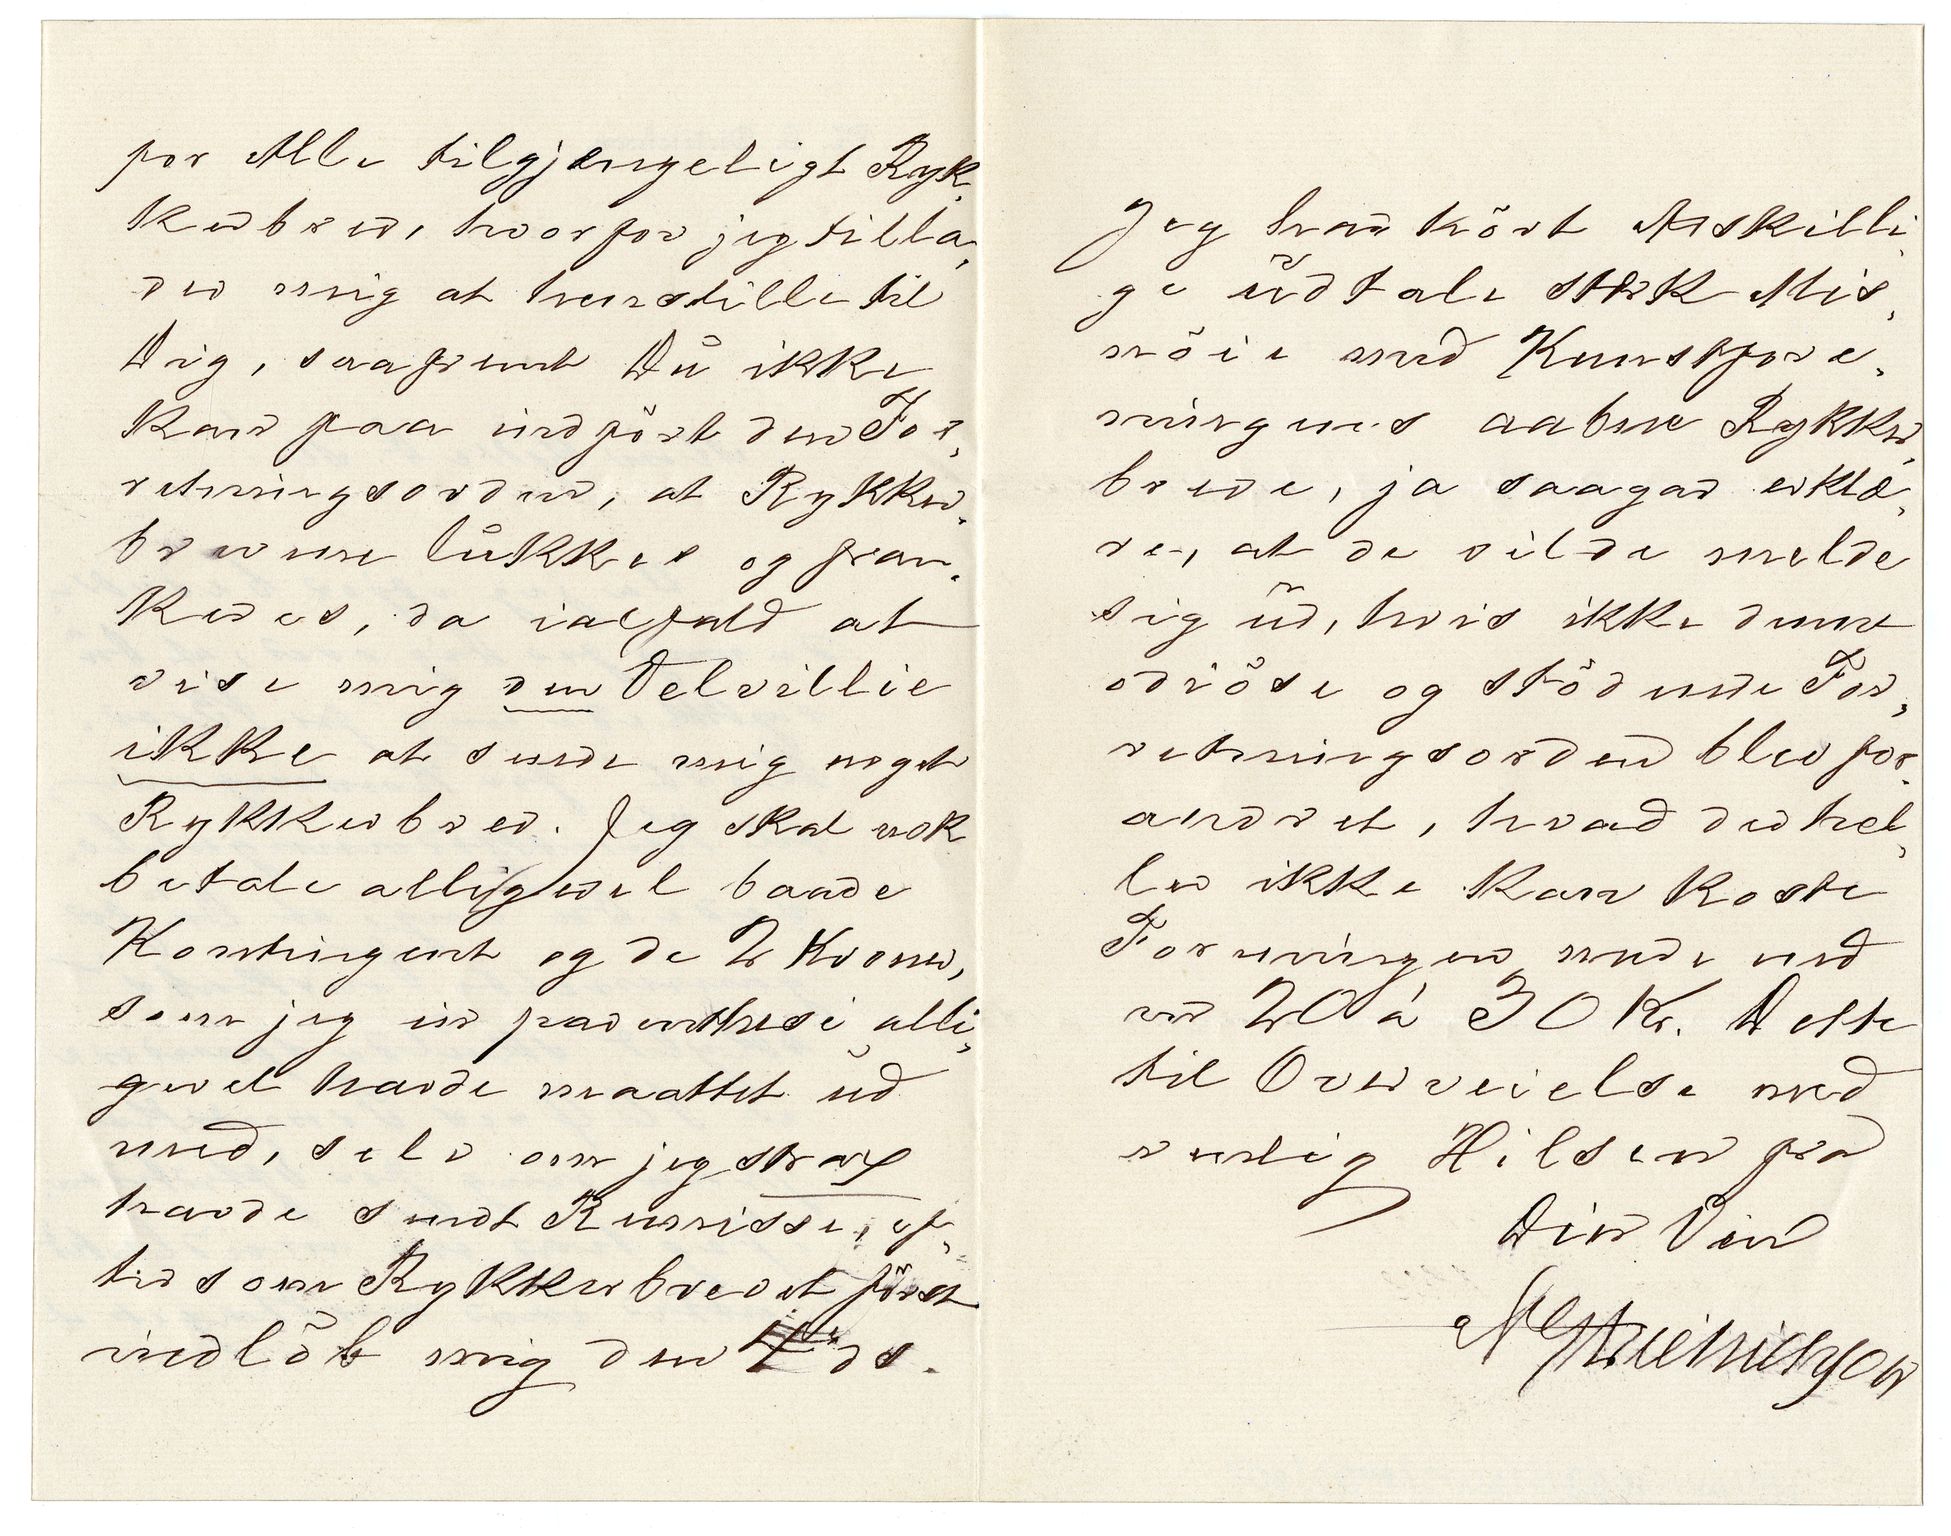 for Alle tilgjængeligt Ryk-
kerbrev, hvorfor jeg tilla-
der mig at henstille til
Dig, saafremt Du ikke
kan faa indført den For-
retningsorden, at Rykker-
brevene lukkes og fran-
keres, da ialfald at
vise mig den Velvillie
ikke at sende mig noget
Rykkerbrev. Jeg skal nok
betale alligevel baade
Kontingent og de 2 Kroner,
som jeg in parenthesi alli-
gevel havde maattet ud
med, selv om jeg strax
havde sendt Remisse, ef-
tersom Rykkerbrevet først
indløb mig den 4de ds.
Jeg har hørt Adskilli-
ge udtale stærk Mis-
nøie med Kunstfore-
ningens aabne Rykker-
breve, ja saagar erklæ-
re, at de vilde melde
sig ud, hvis ikke denne
odiøse og stødende For-
retningsorden blev for-
andret, hvad der hel-
ler ikke kan koste
Foreningen mere end
en 20 à 30 Kr. Dette
til Overveielse med
venlig Hilsen fra
Din Ven